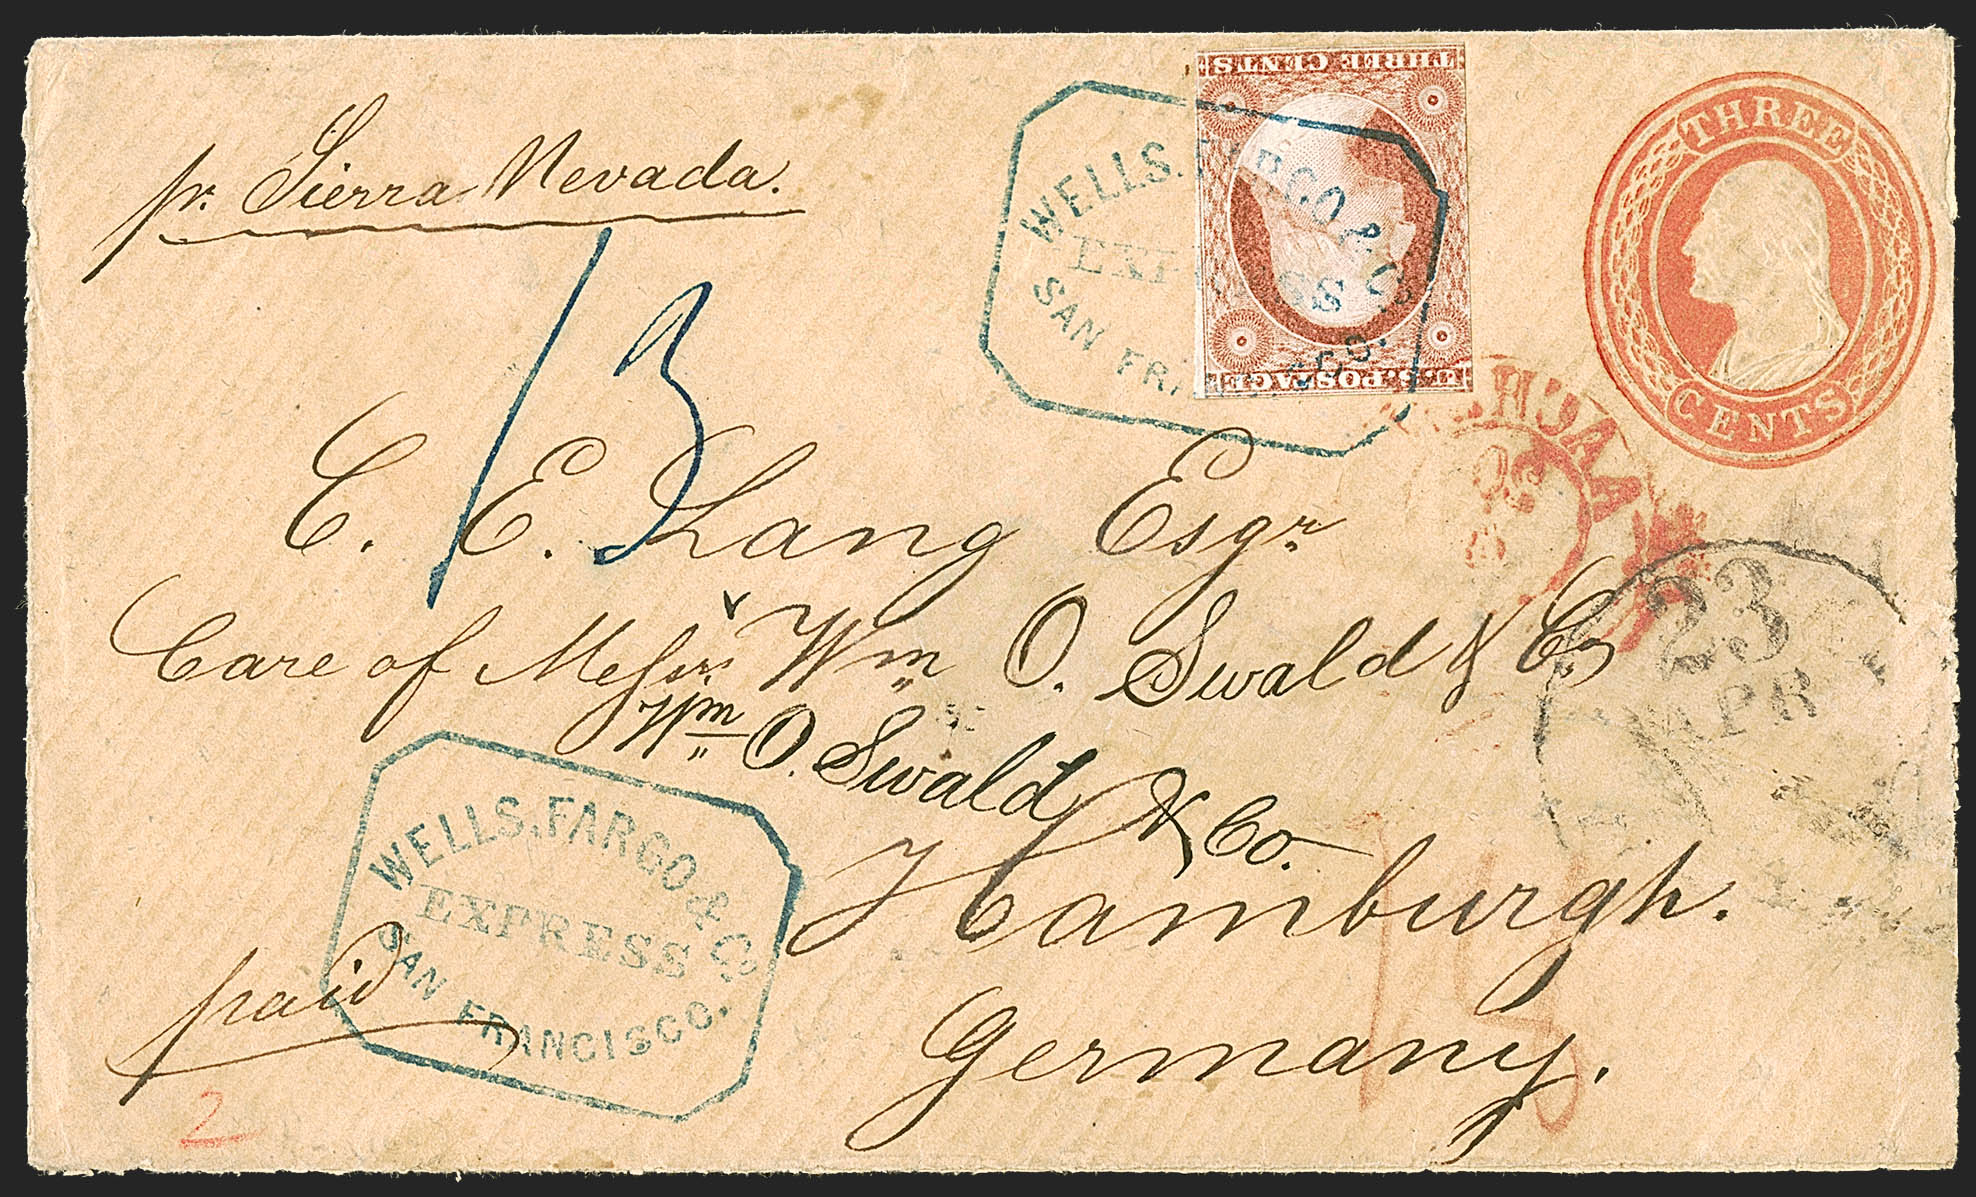 pr. Sierra Nevada.
THREE CENTS
U.S. POSTAGE
THREE
CENTS
WELLS, FARGO & Co
EXPRESS
SAN FRANCISCO.
13
C. E. Lang Esqr
Care of Messrs. Wm O. Swald & Co
Wm O. Swald & Co.
Hamburgh.
Germany.
23
APR
WELLS, FARGO & Co
EXPRESS
SAN FRANCISCO.
paid
2